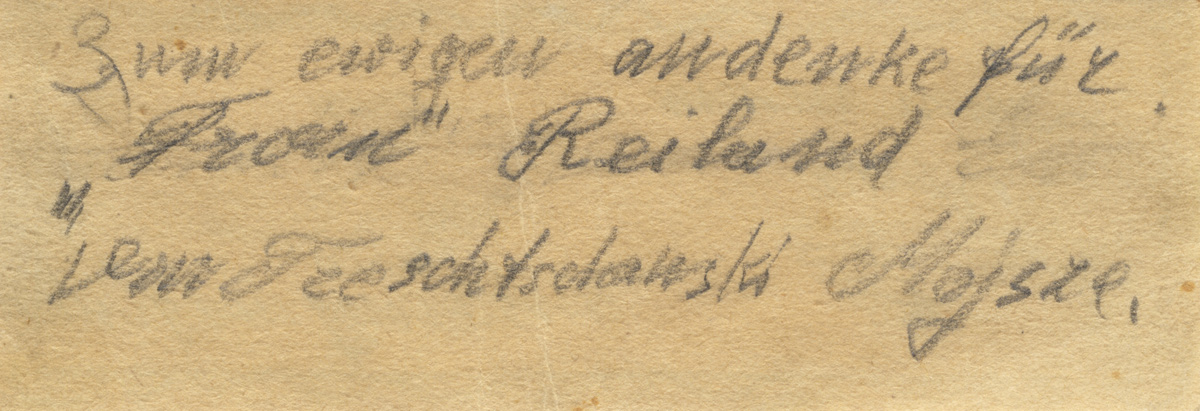 Zum ewigen andenke für.
„Frau" Reiland
vem Treschtschanski Mojsze,